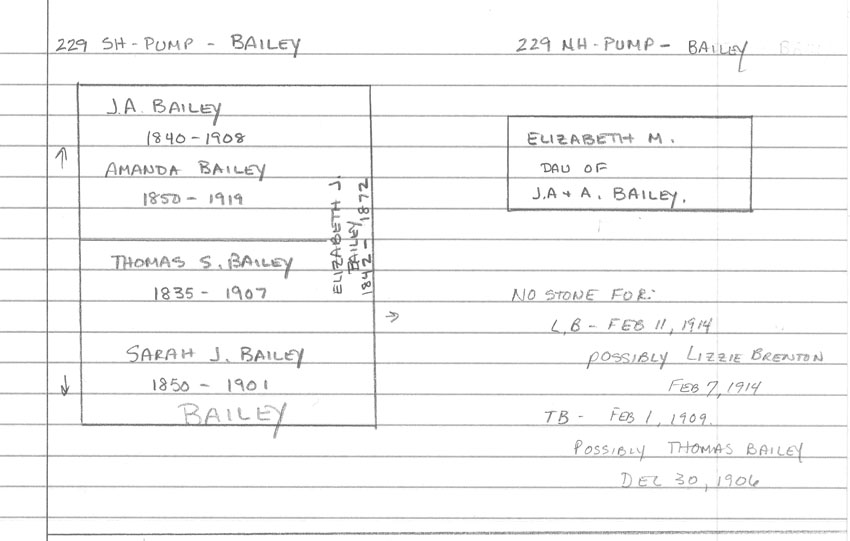 229 SH-PUMP - BAILEY
J.A. BAILEY
1840-1908
AMANDA BAILEY
1850 - 1919
THOMAS S. BAILEY
1835 - 1907
SARAH J. BAILEY
1850 - 1901
BAILEY
ELIZABETH J.
BAILEY
1842 - 1872
229 NH-PUMP - BAILEY
ELIZABETH M.
DAU OF
J.A + A. BAILEY.
NO STONE FOR:
L.B - FEB 11, 1914
POSSIBLY LIZZIE BRENTON
FEB 7, 1914
TB - FEB 1, 1909.
POSSIBLY THOMAS BAILEY
DEC 30, 1906